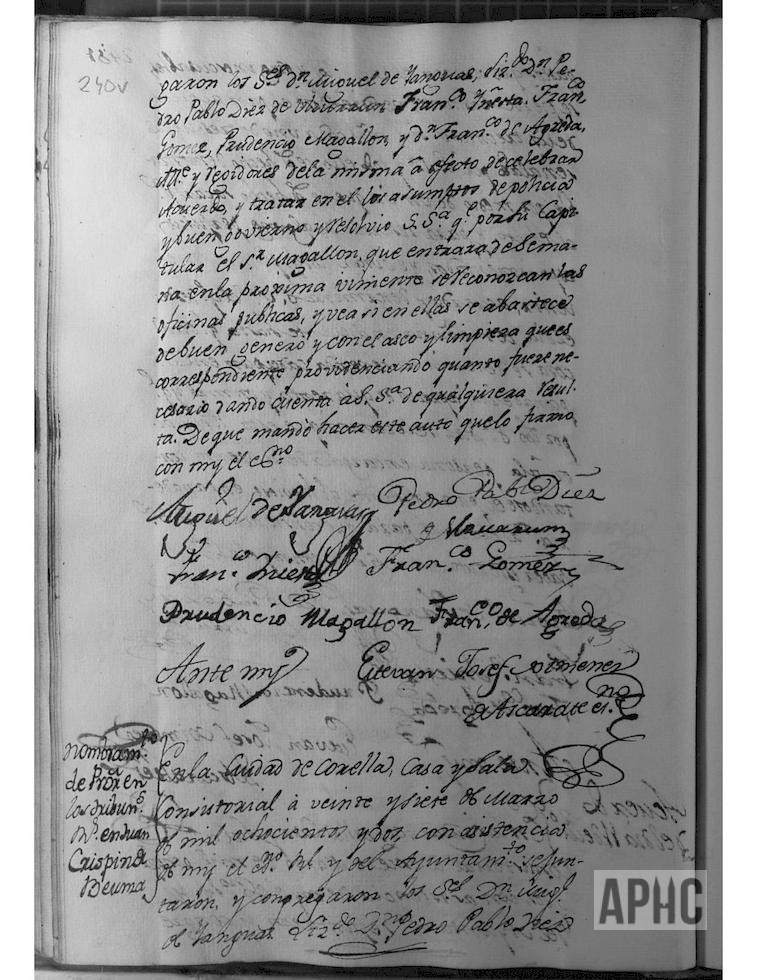 240v
garon los S.res d.n Miguel de Yanguas, Liz.do D.n Pe-
dro Pablo Diez de Ulzurrun Fran.co Yñesta. Fran.co
Gomez, Prudencio Magallon, y d.n Fran.co de Agreda,
Alc.e y regidores dela misma à efecto de celebrar
Acuerdo, y tratar en el los asumptos de policia
y buen govierno y resolvio S. S.a q.e por su Capi-
tular el S.r Magallon, que entrara de Sema-
na enla proxima viniente se reconozcan las
oficinas publicas, y vea si en ellas se abastece
de buen genero y con el aseo y limpieza que es
correspondiente providenciando quanto fuere ne-
cesario dando cuenta à S. S.a de qualquiera resul-
ta. De que mandò hacer este auto que lo firmò
con my el es.no
Miguel de Yanguas Pedro Pablo Diez
Ulzurrun
Fran.co Fran.co Gomez
Prudencio Magallon Fran.co de Agreda
Ante my Estevan Josef Ximenez
de Ascarate es.no
Nombram.to
de Pror en
los tribun.s
R.s en Juan
Crispin de
Beuma
En la Ciudad de Corella, Casa y Sala
Consistorial à veinte y siete de Marzo
de mil ochocientos y dos, con asistencia
de my el es.no R.l y del Ayuntam.to se jun-
taron, y congregaron los S.res D.n Mig.l
de Yanguas Liz.do D.n Pedro Pablo Diez
APHC